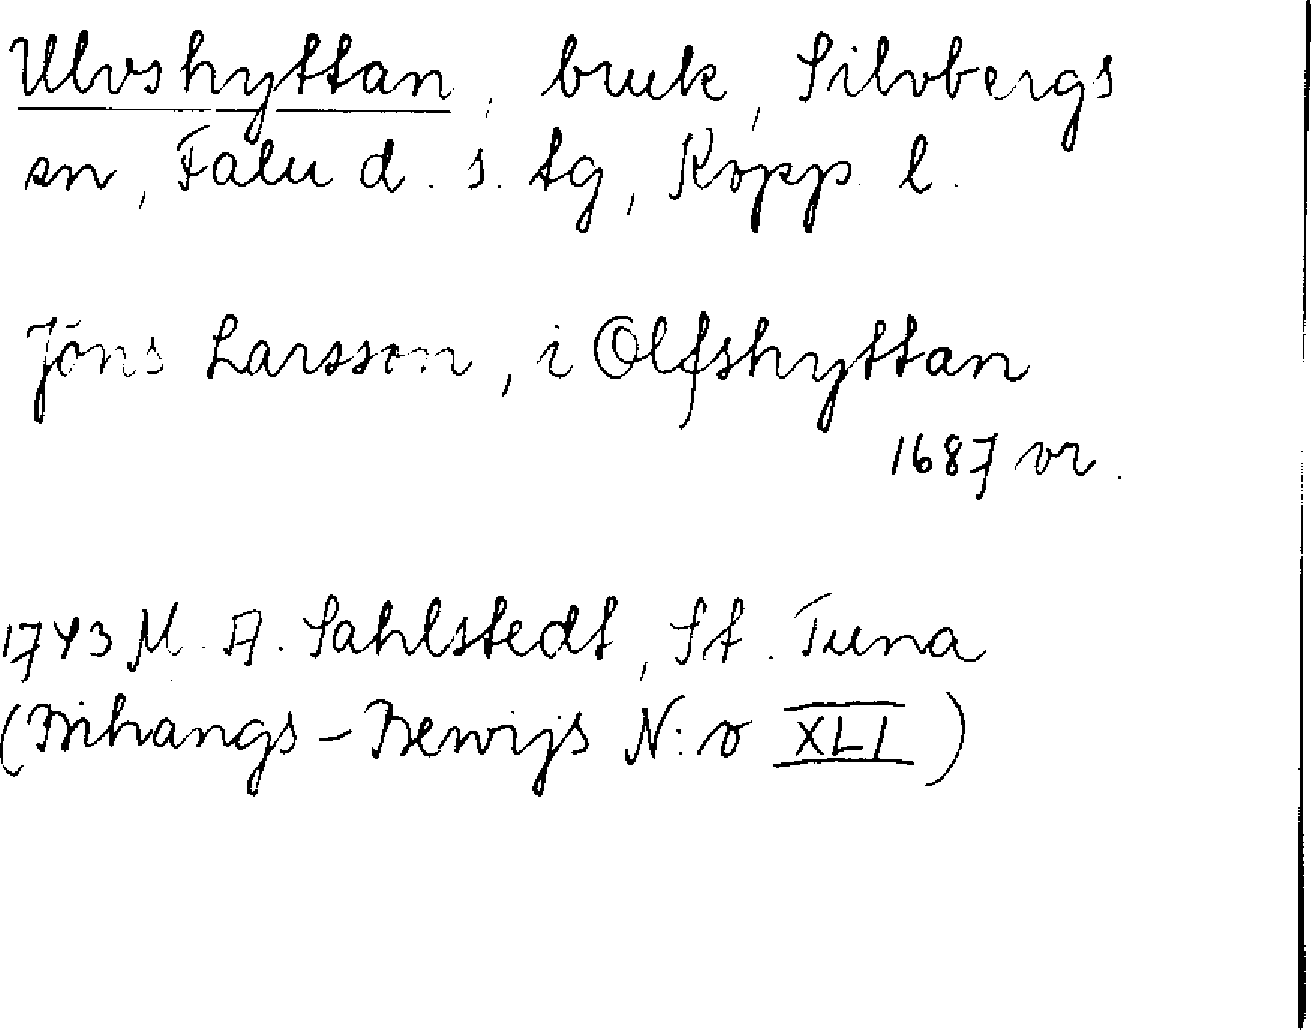 Ulvshyttan, bruk, Silvbergs
sn, Falu d. s. tg, Kopp. l.
Jöns Larsson, i Olfshyttan
1687 vr.
1743 M. A. Sahlstedt, St. Tuna
(Bihangs-Bewijs N:o XLI)